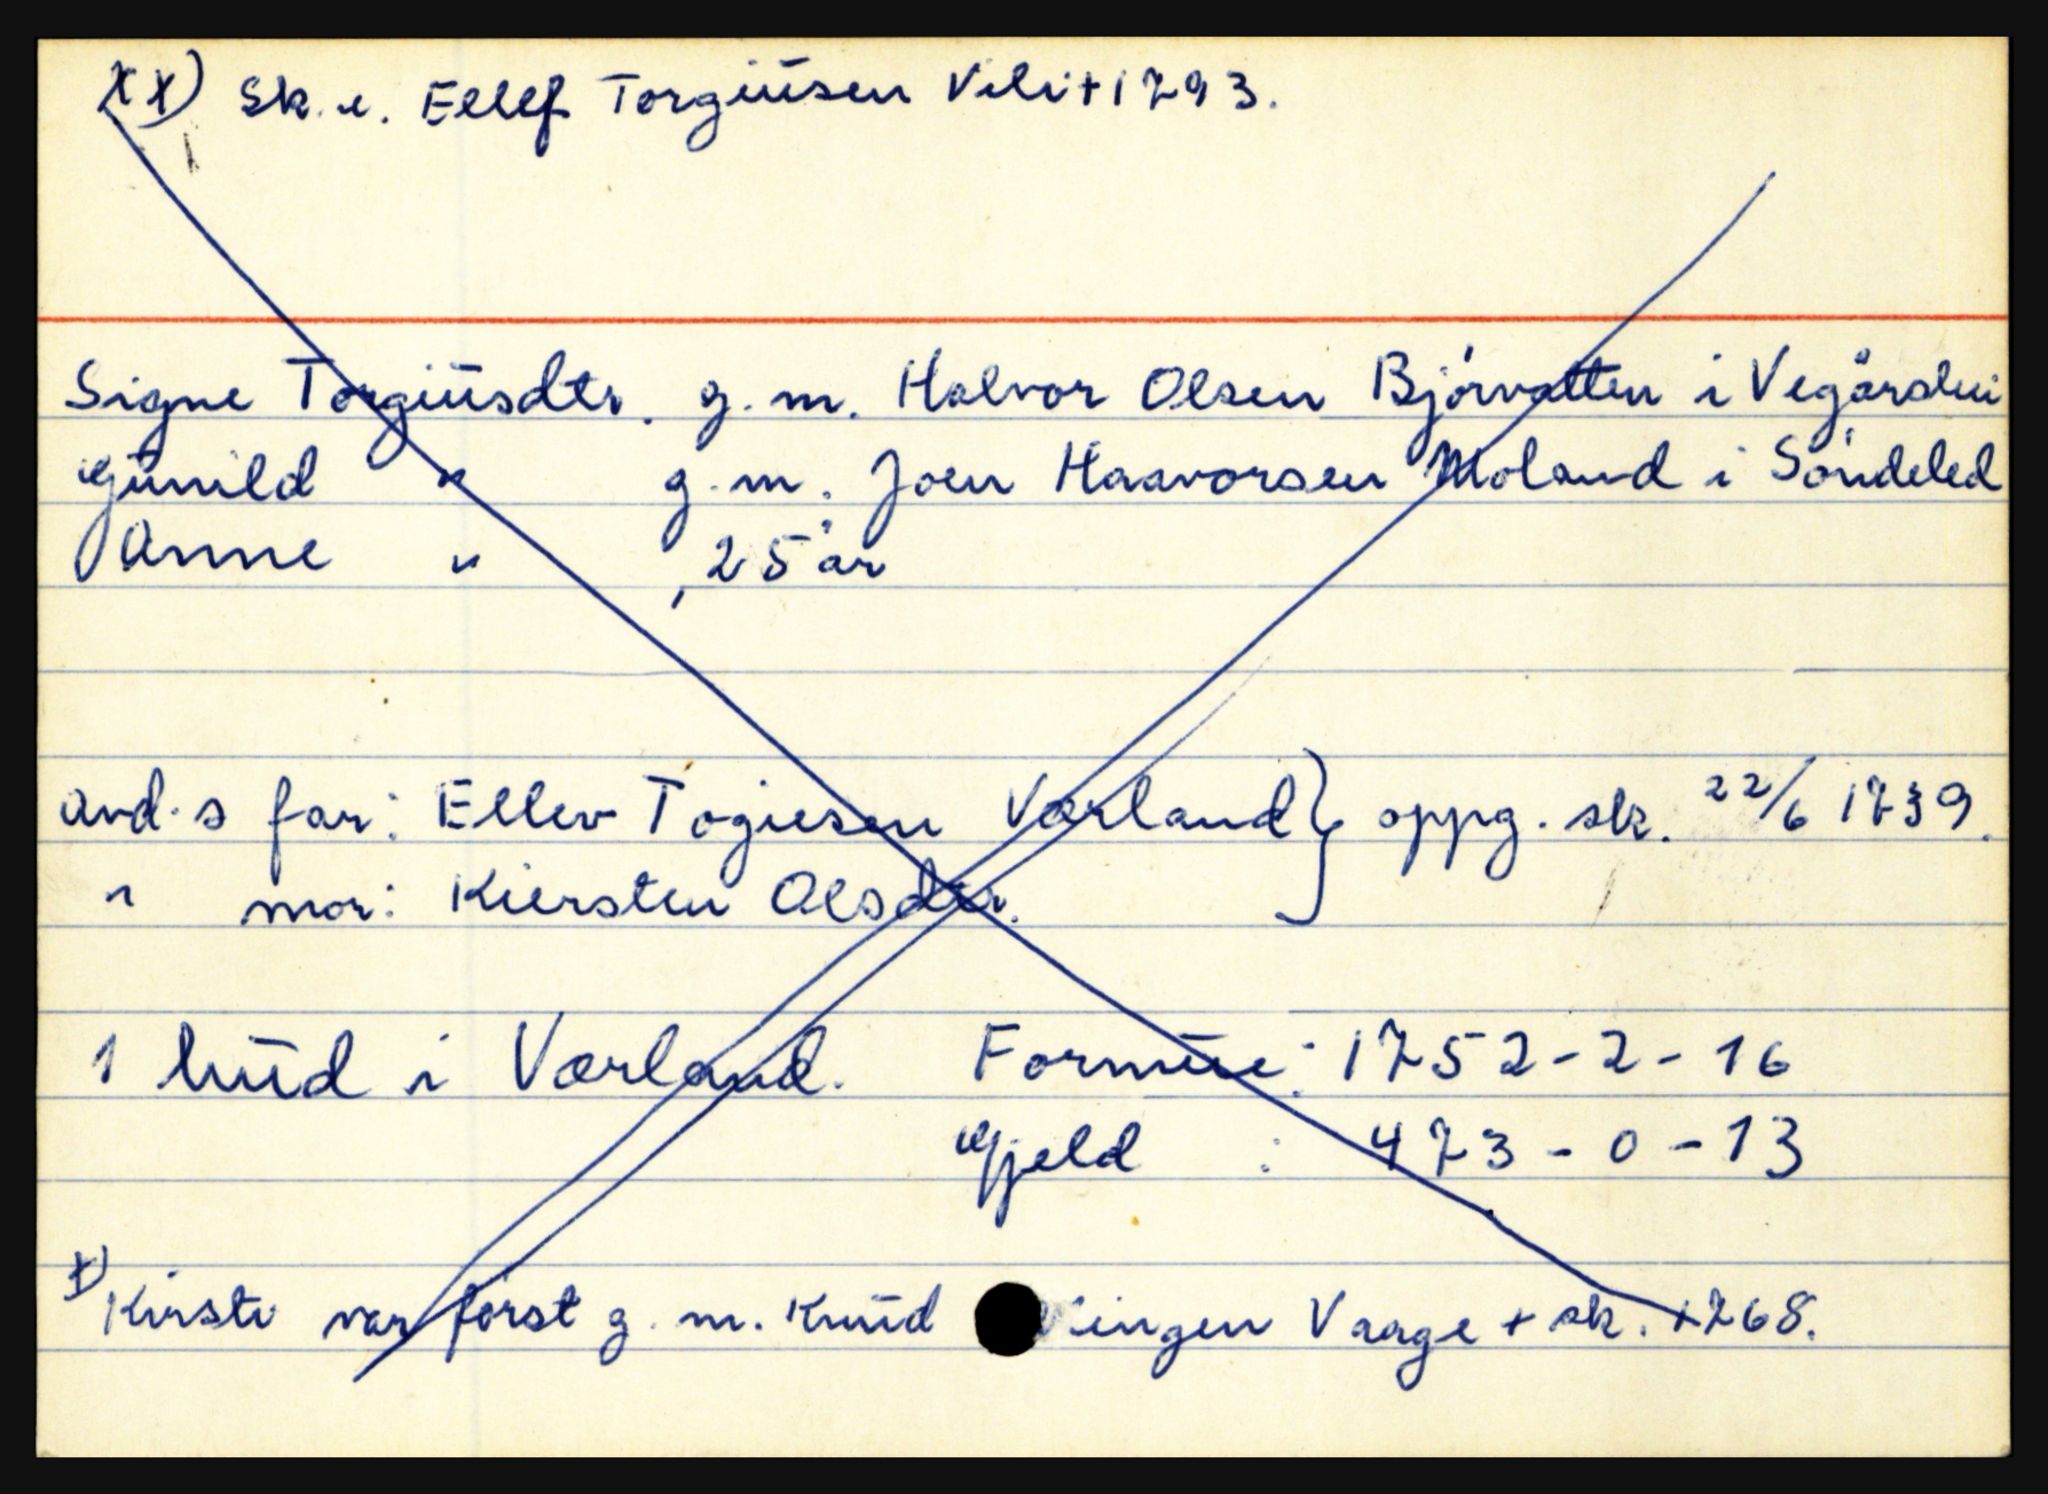 xx) Sk. e. Ellef Torgiüsen Veli + 1793.
Signe Torgiüsdtr. g. m. Halvor Olsen Bjórvatten i Vegårshei
Günild " g. m. Joen Haavorsen Moland i Sóndeled
Anne " , 25 år
avd. s far: Ellev Togiesen Værland } oppg. sk. 22/6 1739.
" mor: Kiersten Olsdtr.
1 hüd i Værland. Formüe: 1752 - 2 - 16
Gjeld : 473 - 0 - 13
x) Kirsti var fórst g. m. Knüd Vaage + sk. 1768.